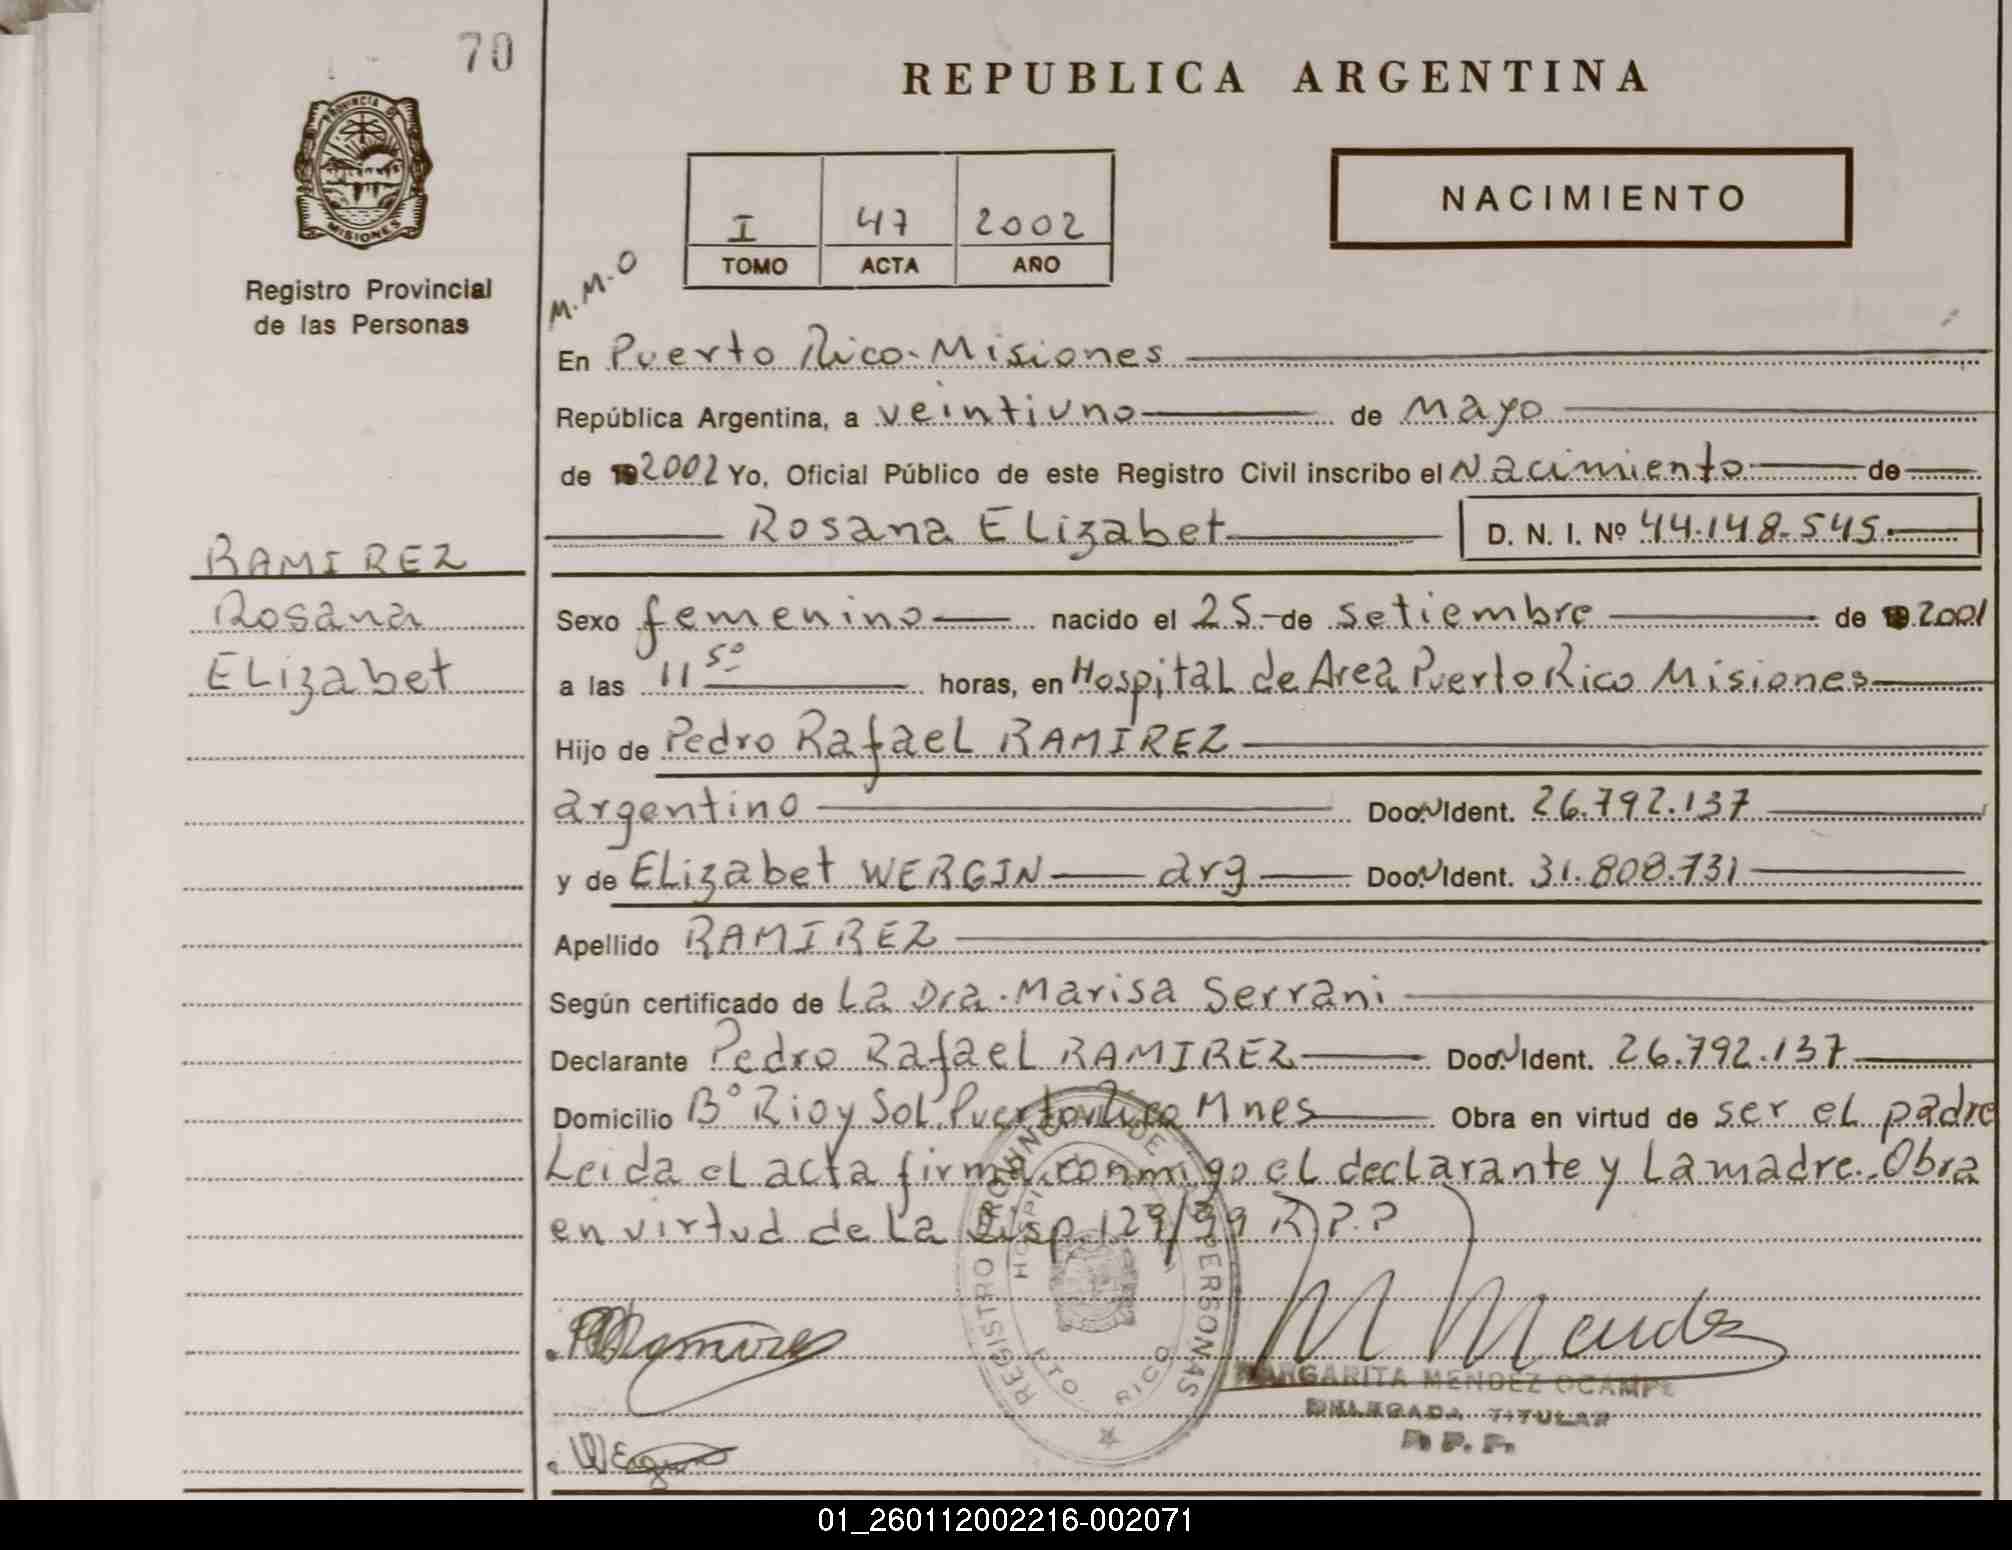 70
REPUBLICA ARGENTINA
PROVINCIA DE
MISIONES
NACIMIENTO
I 47 2002
TOMO ACTA AÑO
Registro Provincial
de las Personas
M.M.O
En Puerto Rico-Misiones
República Argentina, a veintiuno de Mayo
de 19 2002 Yo, Oficial Público de este Registro Civil inscribo el Nacimiento de
Rosana ELizabet D. N. I. Nº 44.148.545.
RAMIREZ
Rosana
ELizabet
Sexo femenino nacido el 25 de setiembre de 19 2001
a las 11 50 horas, en HospitaL de Area Puerto Rico Misiones
Hijo de Pedro RafaeL RAMIREZ
argentino Doc. N Ident. 26.792.137
y de ELizabet WERGIN arg Doc. N Ident. 31.808.731
Apellido RAMIREZ
Según certificado de La Dra. Marisa Serrani
Declarante Pedro RafaeL RAMIREZ Doc. N Ident. 26.792.137
Domicilio Bº Rio y SoL. Puerto Rico Mnes Obra en virtud de ser eL padre
Leida eL acta firma conmigo eL declarante y La madre. Obra
en virtud de La Disp. 129/99 R.P.P
REGISTRO PROVINCIAL DE LAS PERSONAS
PTO. RICO
Ramirez
M Mendez
MARGARITA MENDEZ OCAMPO
DELEGADA TITULAR
R.P.P.
01_260112002216-002071